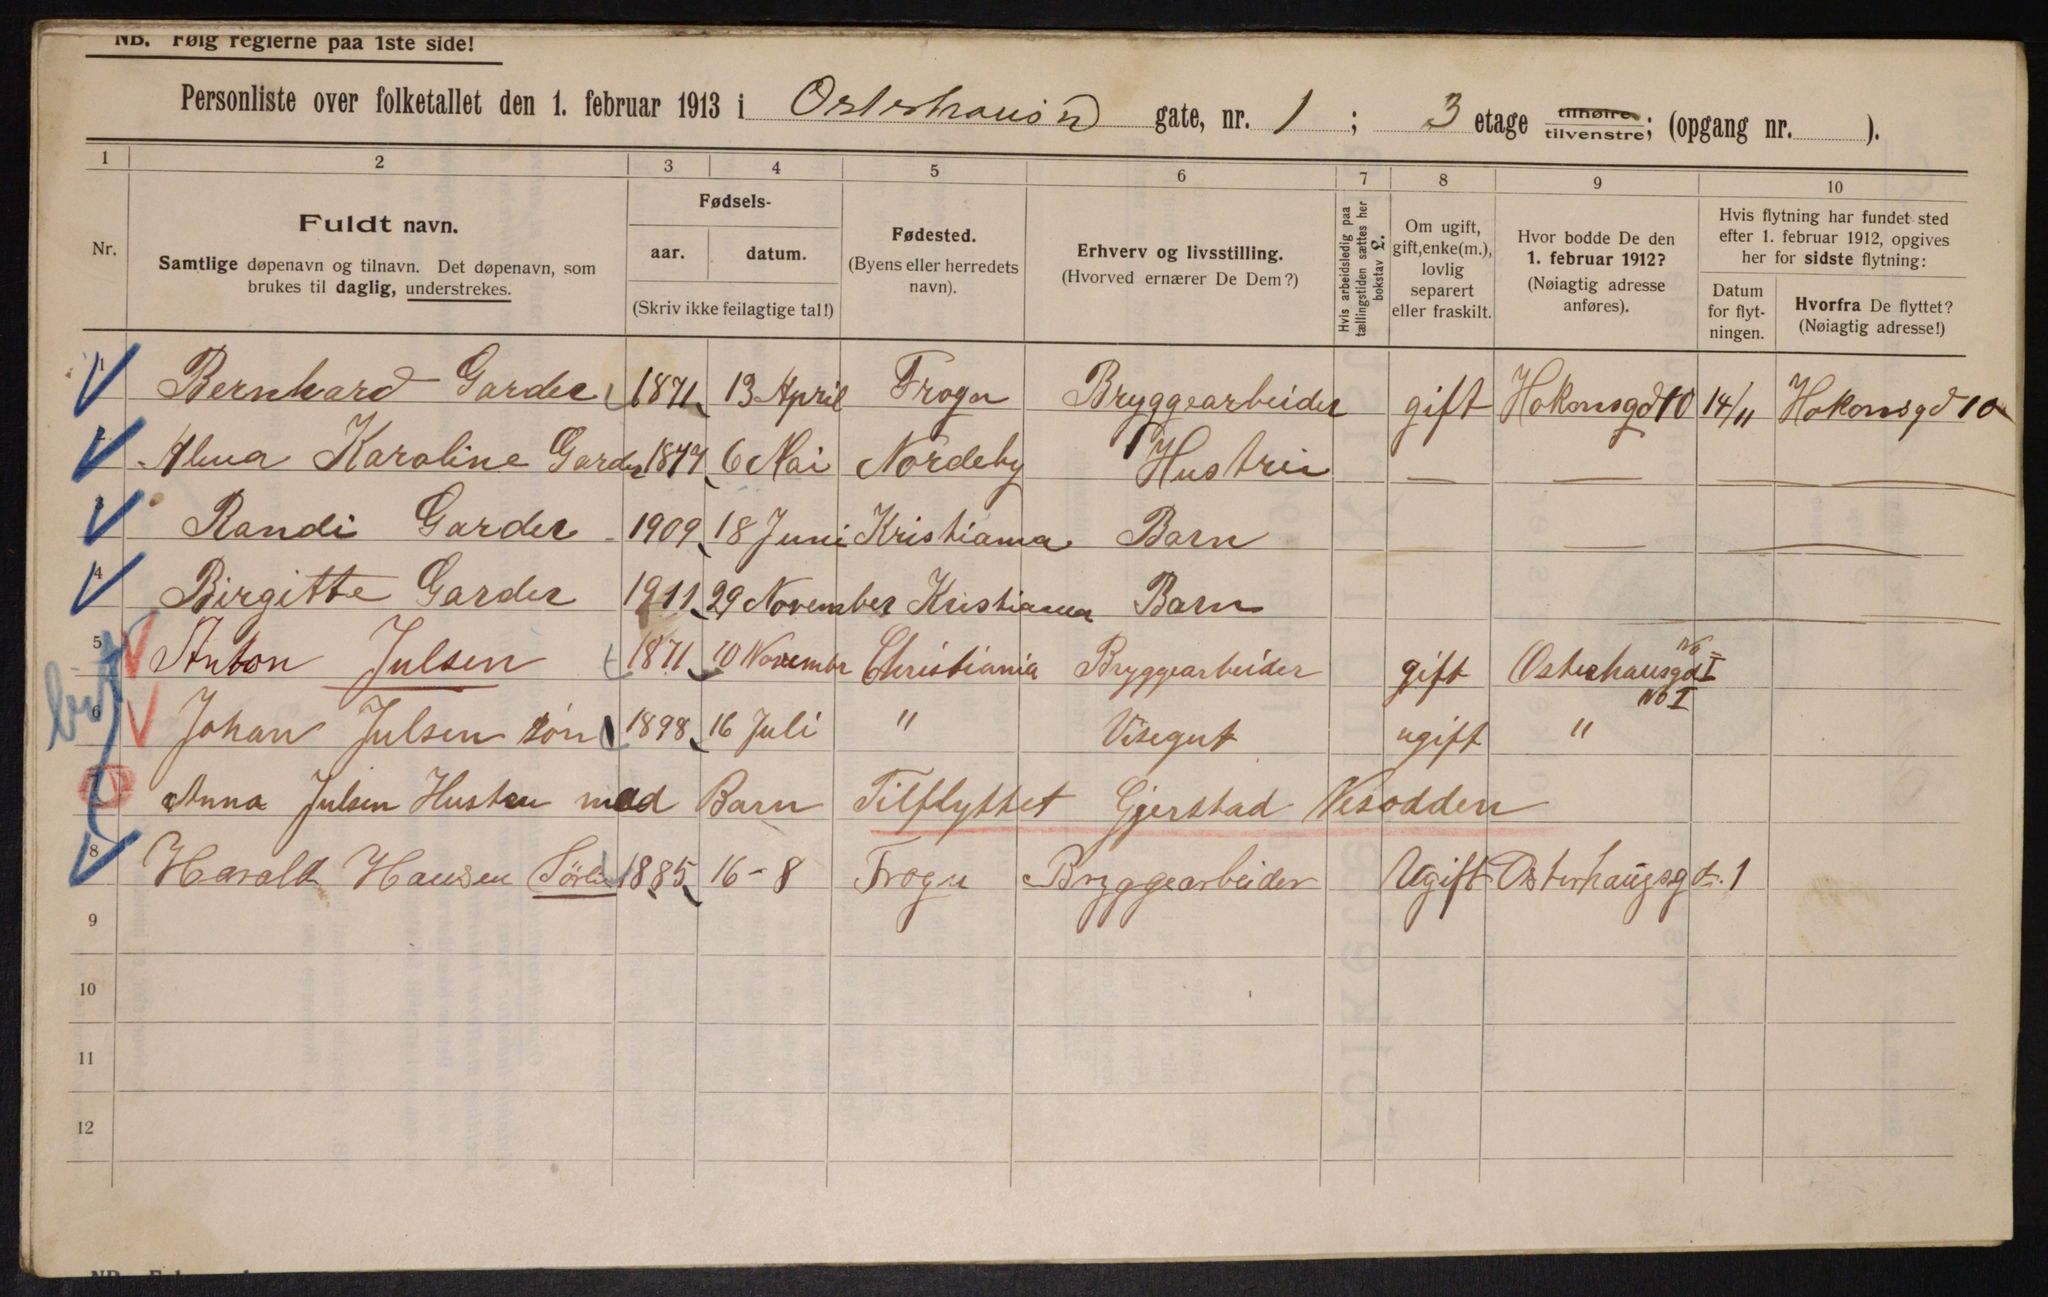 NB. Følg reglerne paa 1ste side!
Personliste over folketallet den 1. februar 1913 i Osterhausn gate, nr. 1 ; 3 etage tilhøire, tilvenstre; (opgang nr. ).
1 2 3 4 5 6 7 8 9 10
Nr.
Fuldt navn.
Samtlige døpenavn og tilnavn. Det døpenavn, som
brukes til daglig, understrekes.
Fødsels-
aar. datum.
(Skriv ikke feilagtige tal!)
Fødested.
(Byens eller herredets
navn).
Erhverv og livsstilling.
(Hvorved ernærer De Dem?)
Hvis arbeidsledig paa
tællingstiden sættes her
bokstav L.
Om ugift,
gift, enke(m.),
lovlig
separert
eller fraskilt.
Hvor bodde De den
1. februar 1912?
(Nøiagtig adresse
anføres).
Hvis flytning har fundet sted
efter 1. februar 1912, opgives
her for sidste flytning:
Datum
for flyt-
ningen.
Hvorfra De flyttet?
(Nøiagtig adresse!)
1 Bernhard Garder 1871 13 April Frogn Bryggearbeider gift Hokonsgd 10 14/11 Hokonsgd 10
Karoline Garder 6 Mai Nordeby Hustru — — — —
3 Randi Garder 1909 18 Juni Kristiania Barn — — — —
4 Birgitte Garder 1911 29 November Kristiania Barn —
5 Anton Julsen 1871 10 Novembr Christiania Bryggearbeider gift Osterhausgd No I
6 Johan Julsen søn 1898 16 Juli " Visegut ugift " No I
7 Anna Julsen Hustru med Barn Tilflyttet Gjerstad Nesodden
8 Harald Hansen 1885 16-8 Frogn Bryggearbeider Ugift Osterhausgd. 1
9
10
11
12